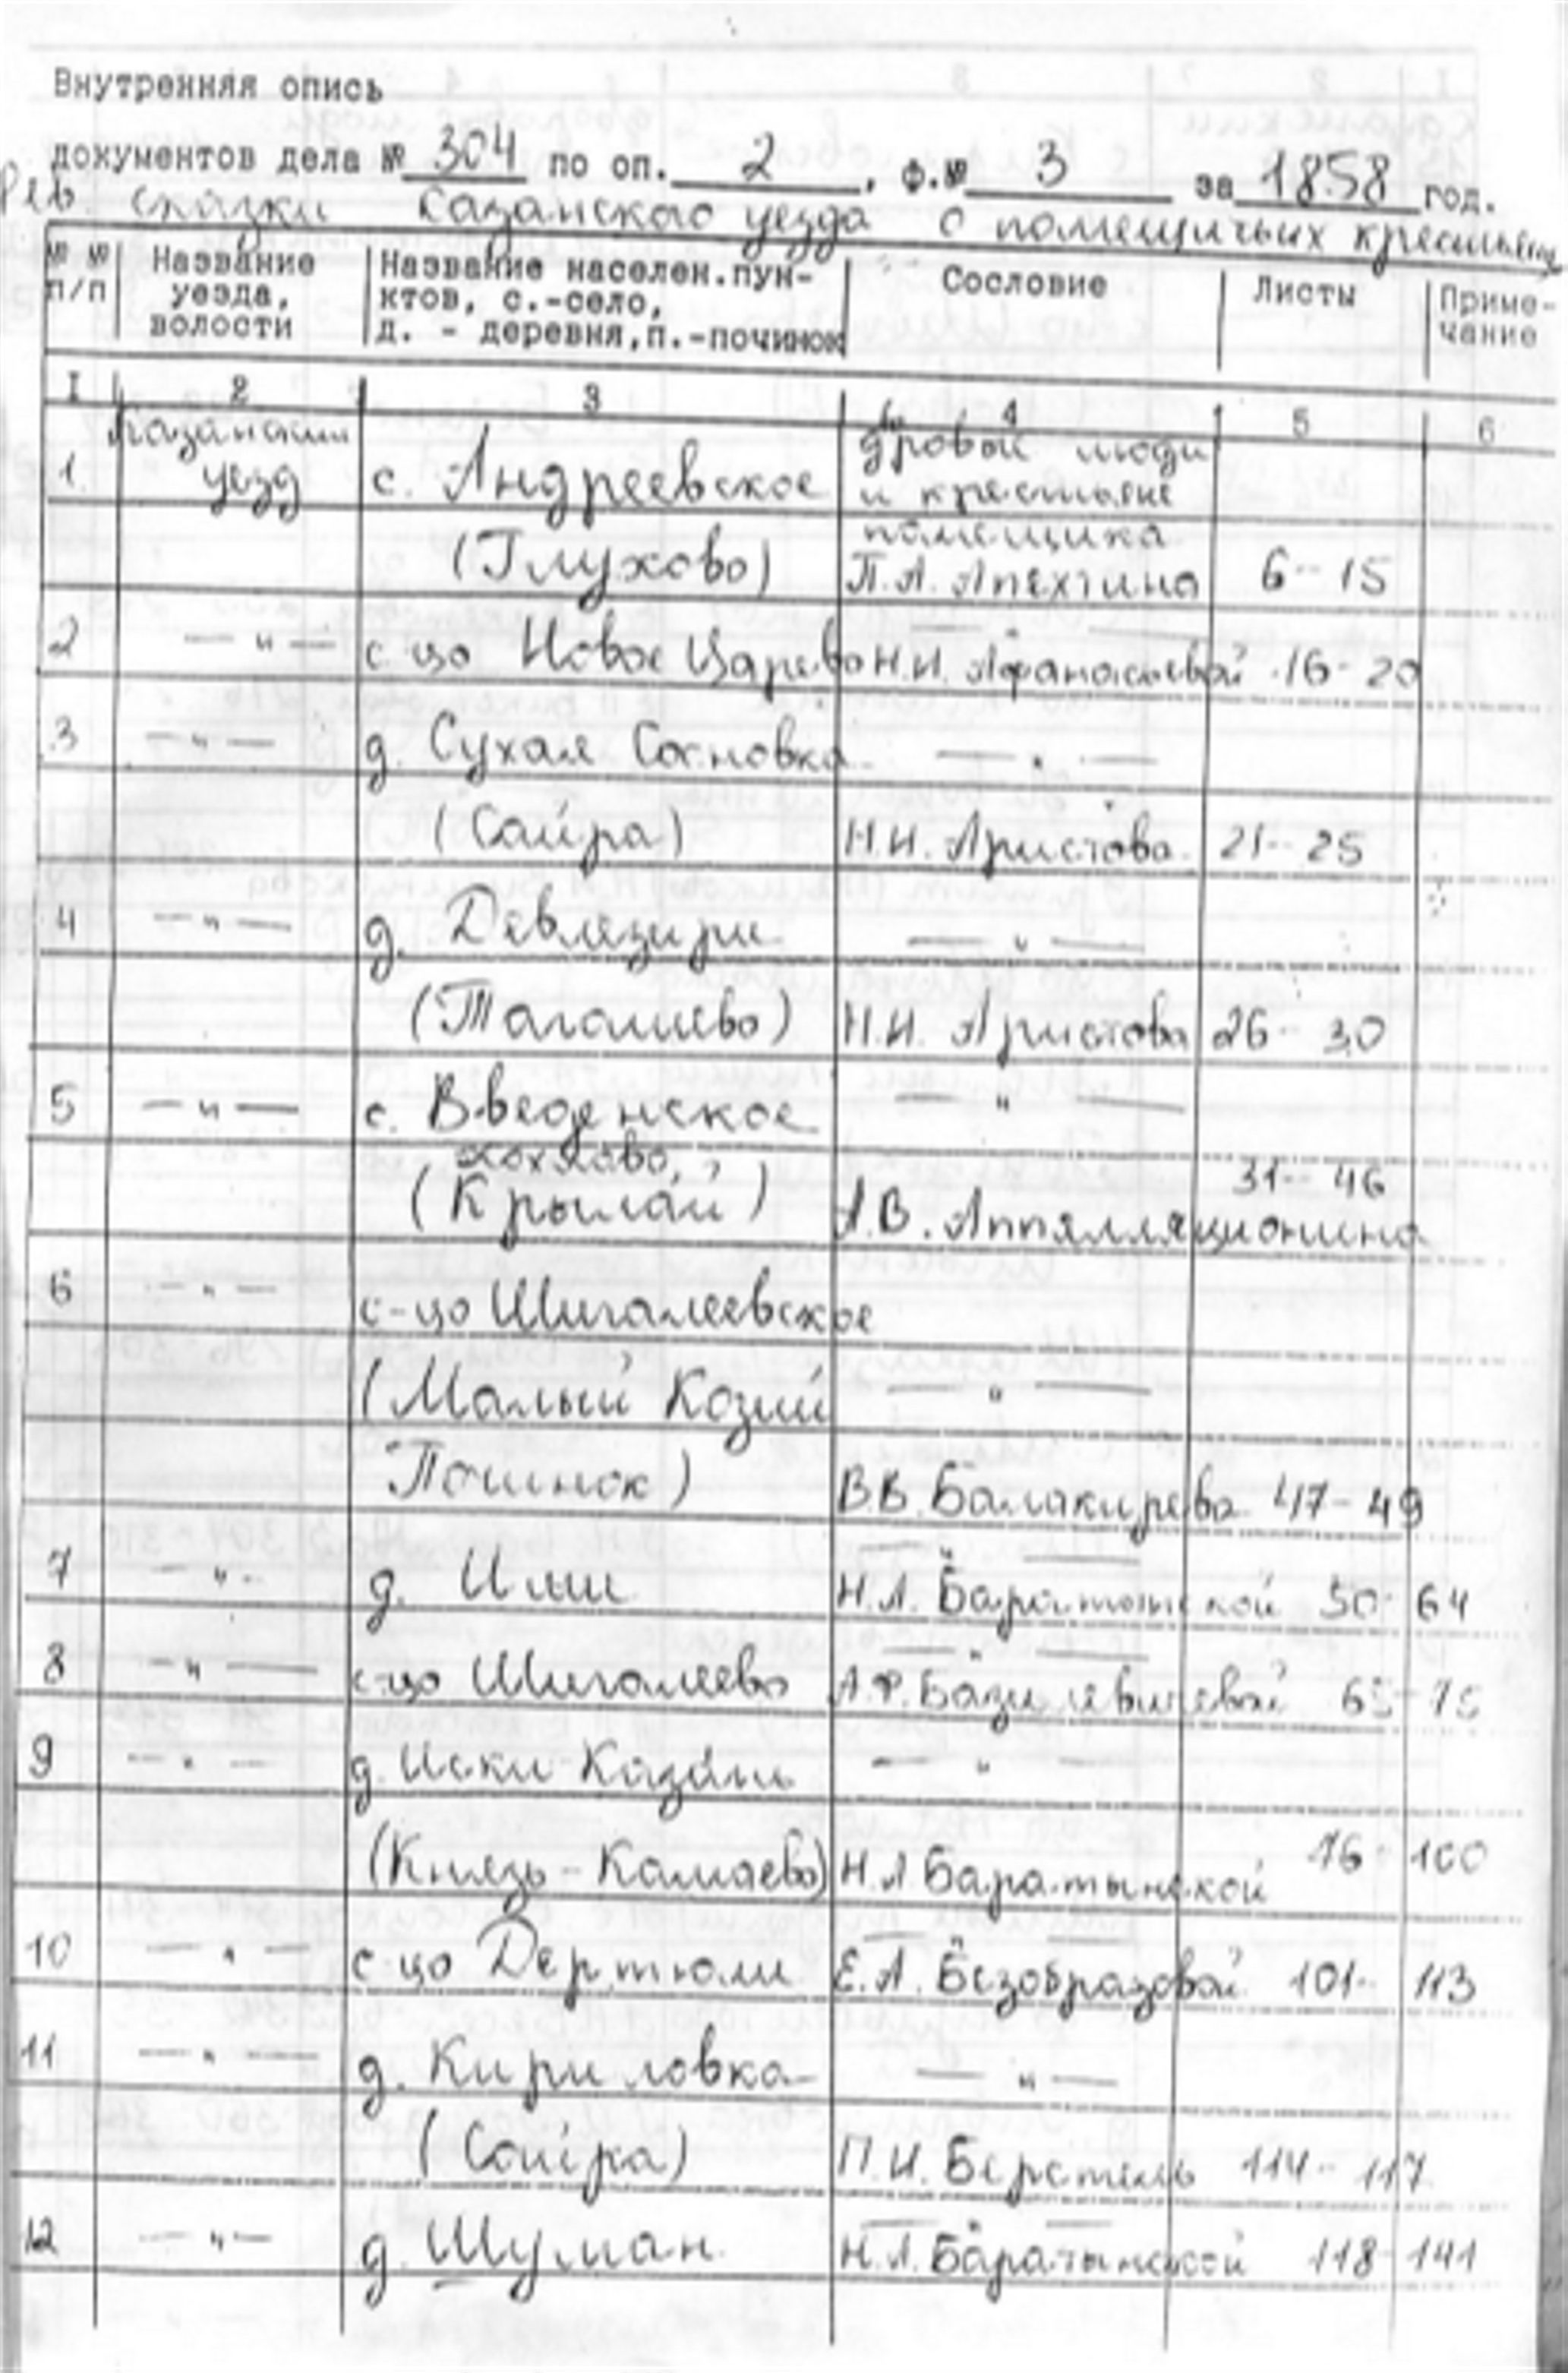 Внутренняя опись
документов дела № 304 по оп. 2, ф.№ 3 за 1858 год.
Рев. сказки Казанского уезда о помещичьих крестьянах
№ № п/п | Название уезда, волости | Название населен.пун-ктов, с.-село, д. - деревня,п.-починок | Сословие | Листы | Приме-чание
I 2 3 4 5 6
Казанский дровые люди
1. уезд с. Андреевское и крестьяне
помещика
(Глухово) П.А. Апехтина 6-15
2 — " — с-цо Новое Царево — " — Н.И. Афанасьевой 16-20
3 — " — д. Сухая Сосновка — " —
(Сайра) Н.И. Аристова 21-25
4 — " — д. Девлезири — " —
(Тагашево) Н.И. Аристова 26-30
5 — " — с. Введенское — " —
хохлово,
(Крылай) А.В. Аппялляционина 31-46
6 — " — с-цо Шигалеевское
(Малый Козий — " —
Починок) В.В. Балакирева 47-49
7 — " — д. Или — " — Н.Л. Баратынской 50-64
8 — " — с-цо Шигалеево — " — А.Ф. Базилевичевой 65-75
9 — " — д. Иски-Казань — " —
(Князь-Камаево) Н.Л Баратынской 76-100
10 — " — с-цо Дертюли — " — Е.А. Безобразовой 101-113
11 — " — д. Кириловка — " —
(Сайра) П.И. Берстель 114-117
12 — " — д. Шуман — " — Н.Л. Баратынской 118-141